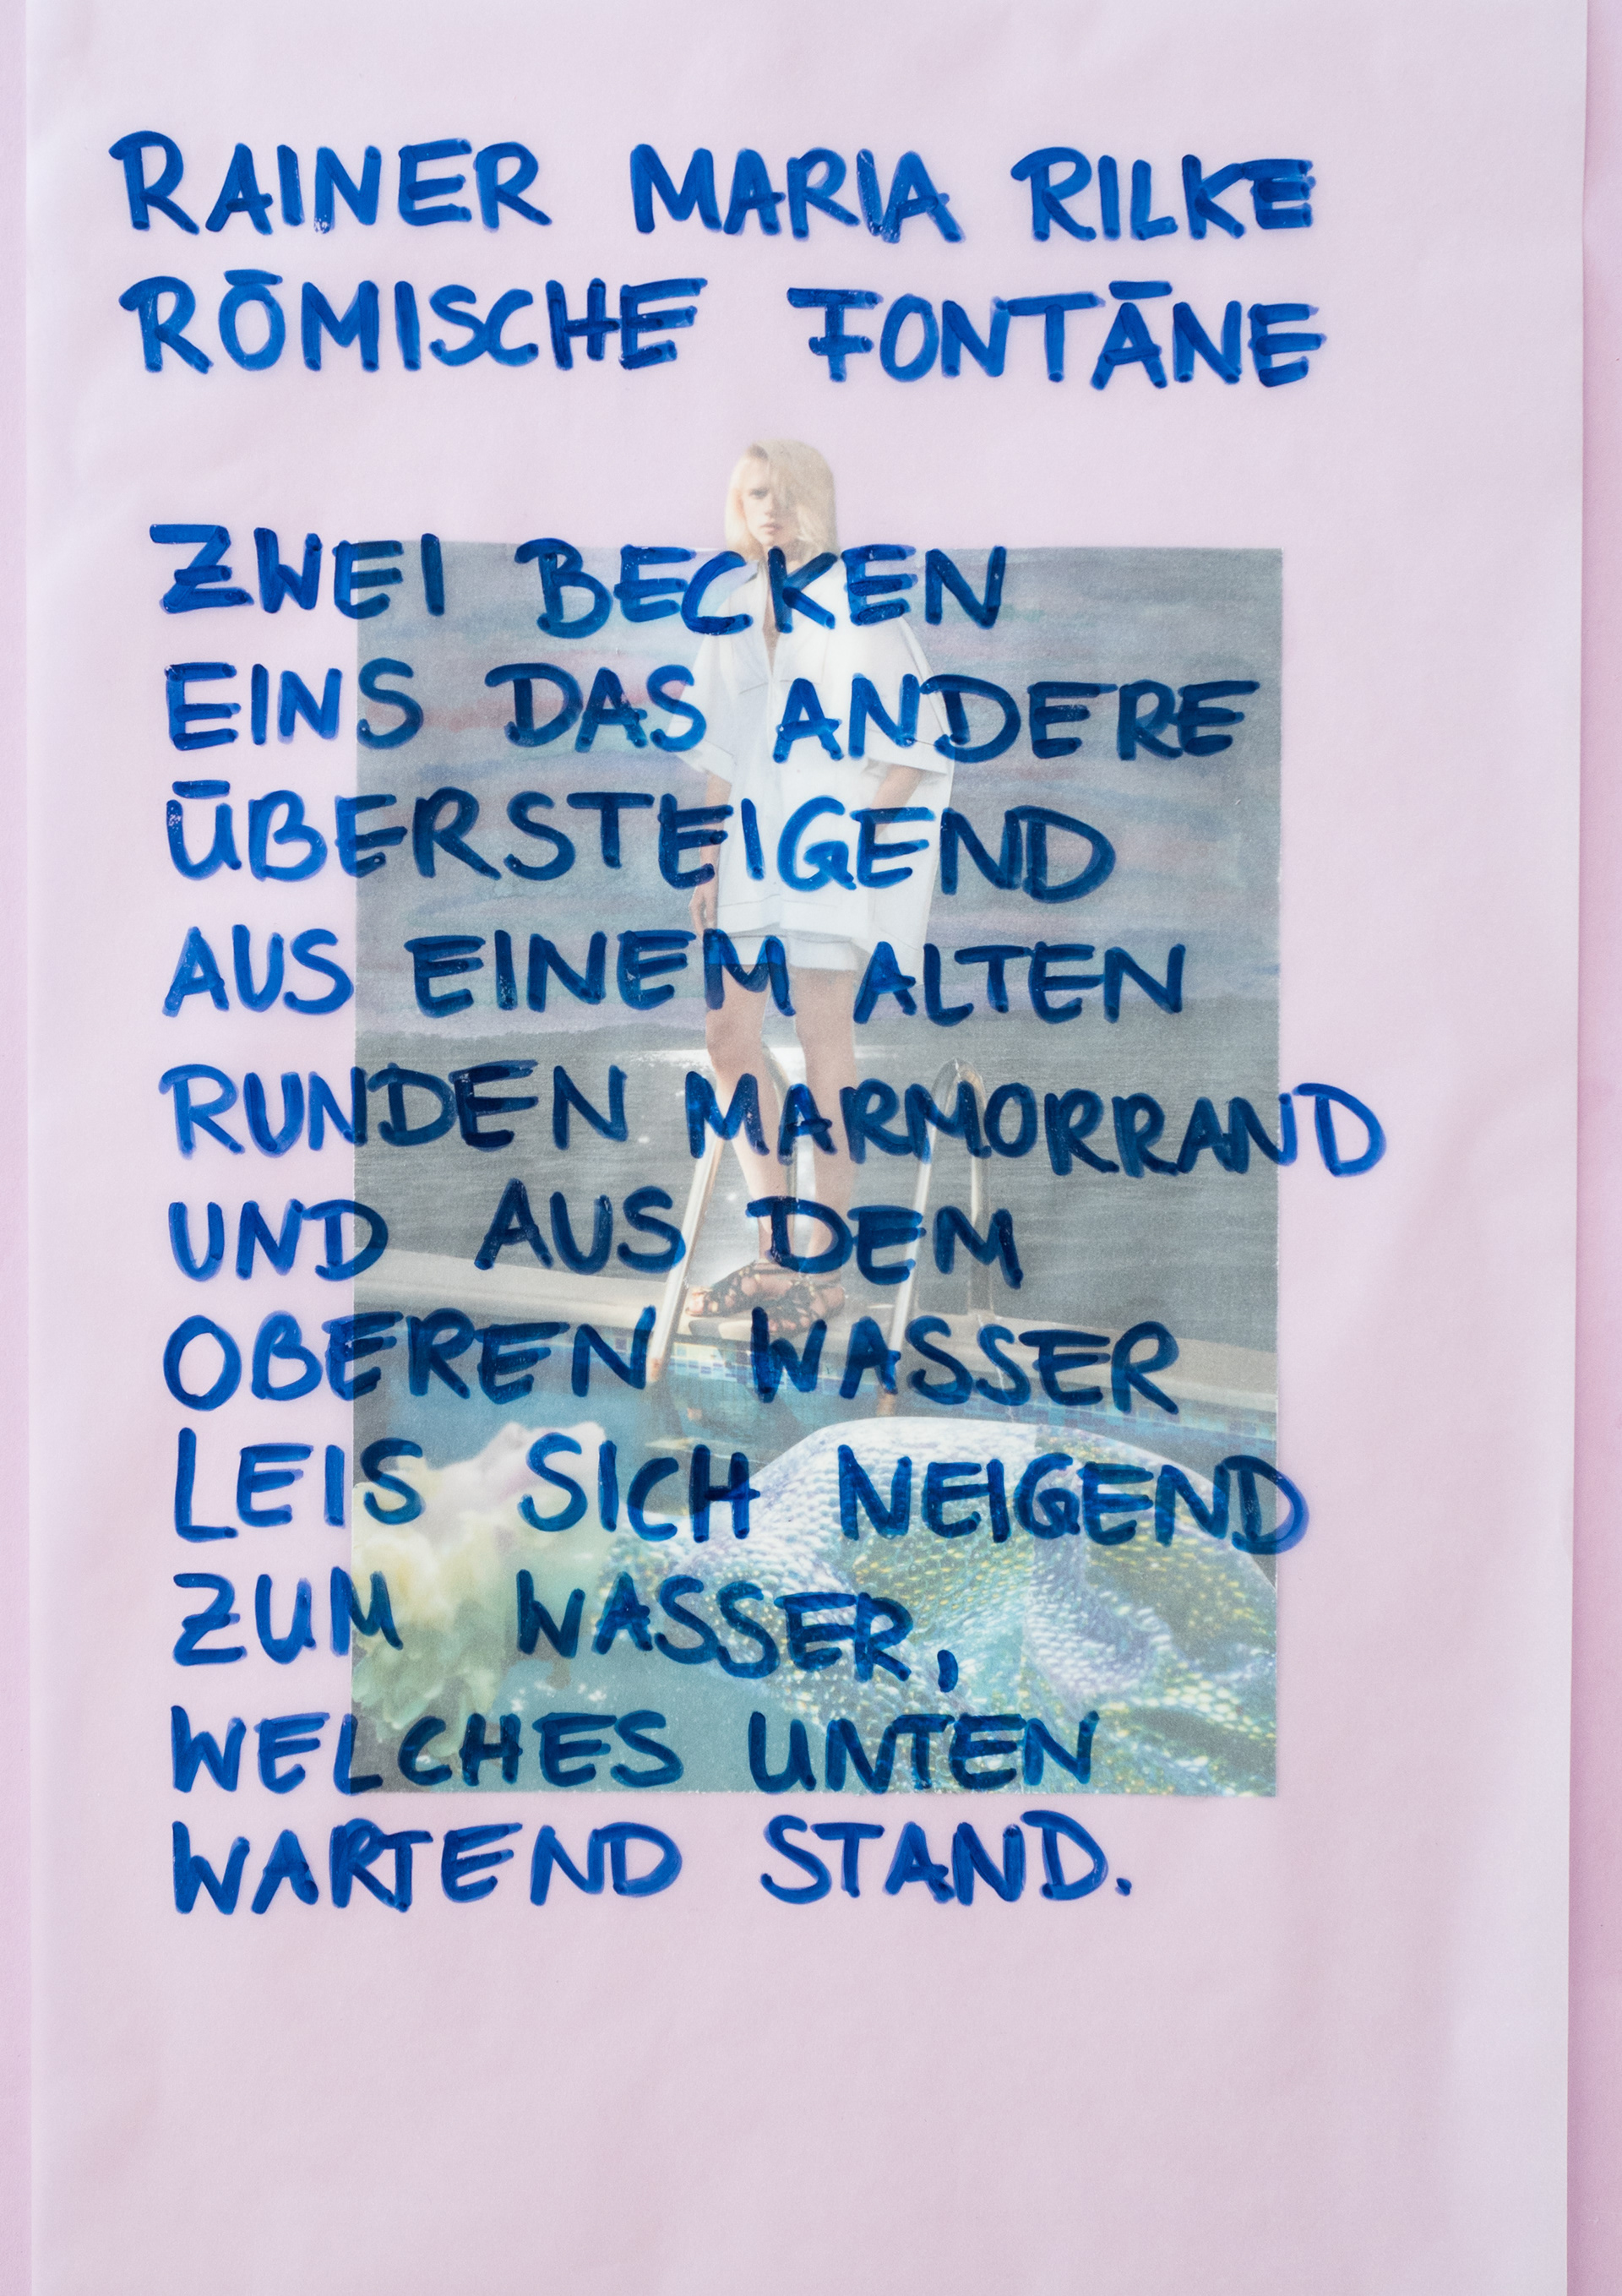 RAINER MARIA RILKE
RÖMISCHE FONTÄNE
ZWEI BECKEN
EINS DAS ANDERE
ÜBERSTEIGEND
AUS EINEM ALTEN
RUNDEN MARMORRAND
UND AUS DEM
OBEREN WASSER
LEIS SICH NEIGEND
ZUM WASSER,
WELCHES UNTEN
WARTEND STAND.